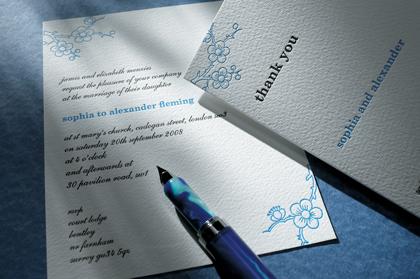 james and elizabeth menzies
request the pleasure of your company
at the marriage of their daughter
sophia to alexander fleming
at st mary's church, cadogan street, london sw3
on saturday 20th september 2008
at 4 o'clock
and afterwards at
30 pavilion road, sw1
rsvp
court lodge
bentley
nr farnham
surrey gu34 5pz
thank you
sophia and alexander